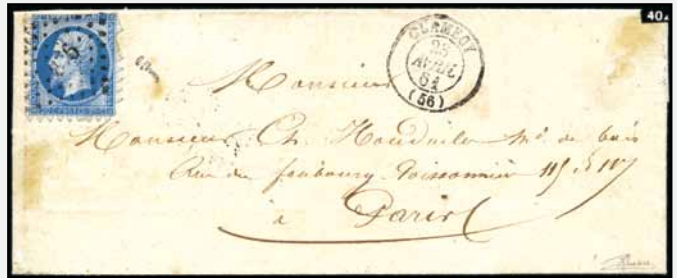 40
CLAMECY
25
AVRIL
64
(56)
Monsieur
Monsieur Ch. Houdaille Md de bois
Rue du faubourg Poissonnière 115 & 117
à Paris